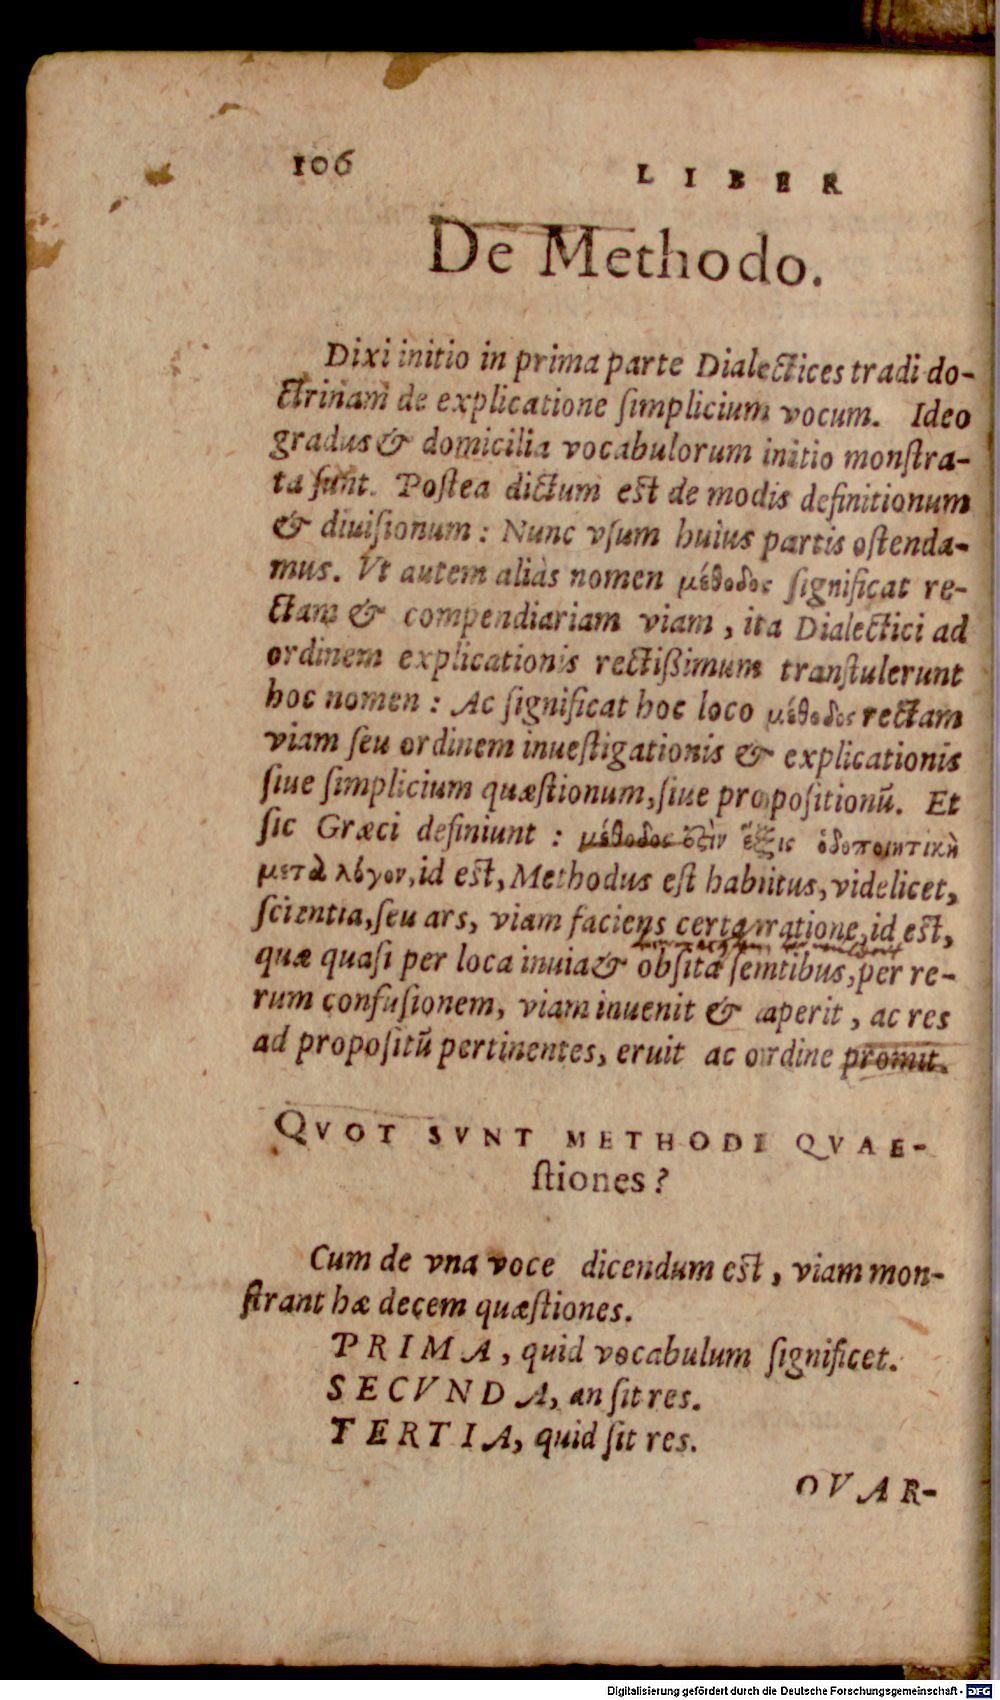 106 LIBER
De Methodo.
Dixi initio in prima parte Dialectices tradi do-
ctrinam de explicatione ſimplicium vocum. Ideo
gradus & domicilia vocabulorum initio monſtra-
ta ſunt. Poſtea dictum eſt de modis definitionum
& diuiſionum : Nunc vſum huius partis oſtenda-
mus. Vt autem aliàs nomen μέθοδος ſignificat re-
ctam & compendiariam viam, ita Dialectici ad
ordinem explicationis rectißimum tranſtulerunt
hoc nomen : Ac ſignificat hoc loco μέθοδος rectam
viam ſeu ordinem inueſtigationis & explicationis
ſiue ſimplicium quæſtionum, ſiue propoſitionũ. Et
ſic Græci definiunt : μέθοδος ἐςὶν ἕξις ὁδοποιητικὴ
μετὰ λόγου, id eſt, Methodus eſt habitus, videlicet,
ſcientia, ſeu ars, viam faciens certa ratione, id eſt,
quæ quaſi per loca inuia & obſita ſentibus, per re-
rum confuſionem, viam inuenit & aperit, ac res
ad propoſitũ pertinentes, eruit ac ordine promit.
QVOT SVNT METHODI QVAE-
ſtiones?
Cum de vna voce dicendum eſt, viam mon-
ſtrant hæ decem quæſtiones.
PRIMA, quid vocabulum ſignificet.
SECVNDA, an ſit res.
TERTIA, quid ſit res.
QVAR-
Digitalisierung gefördert durch die Deutsche Forschungsgemeinschaft - DFG